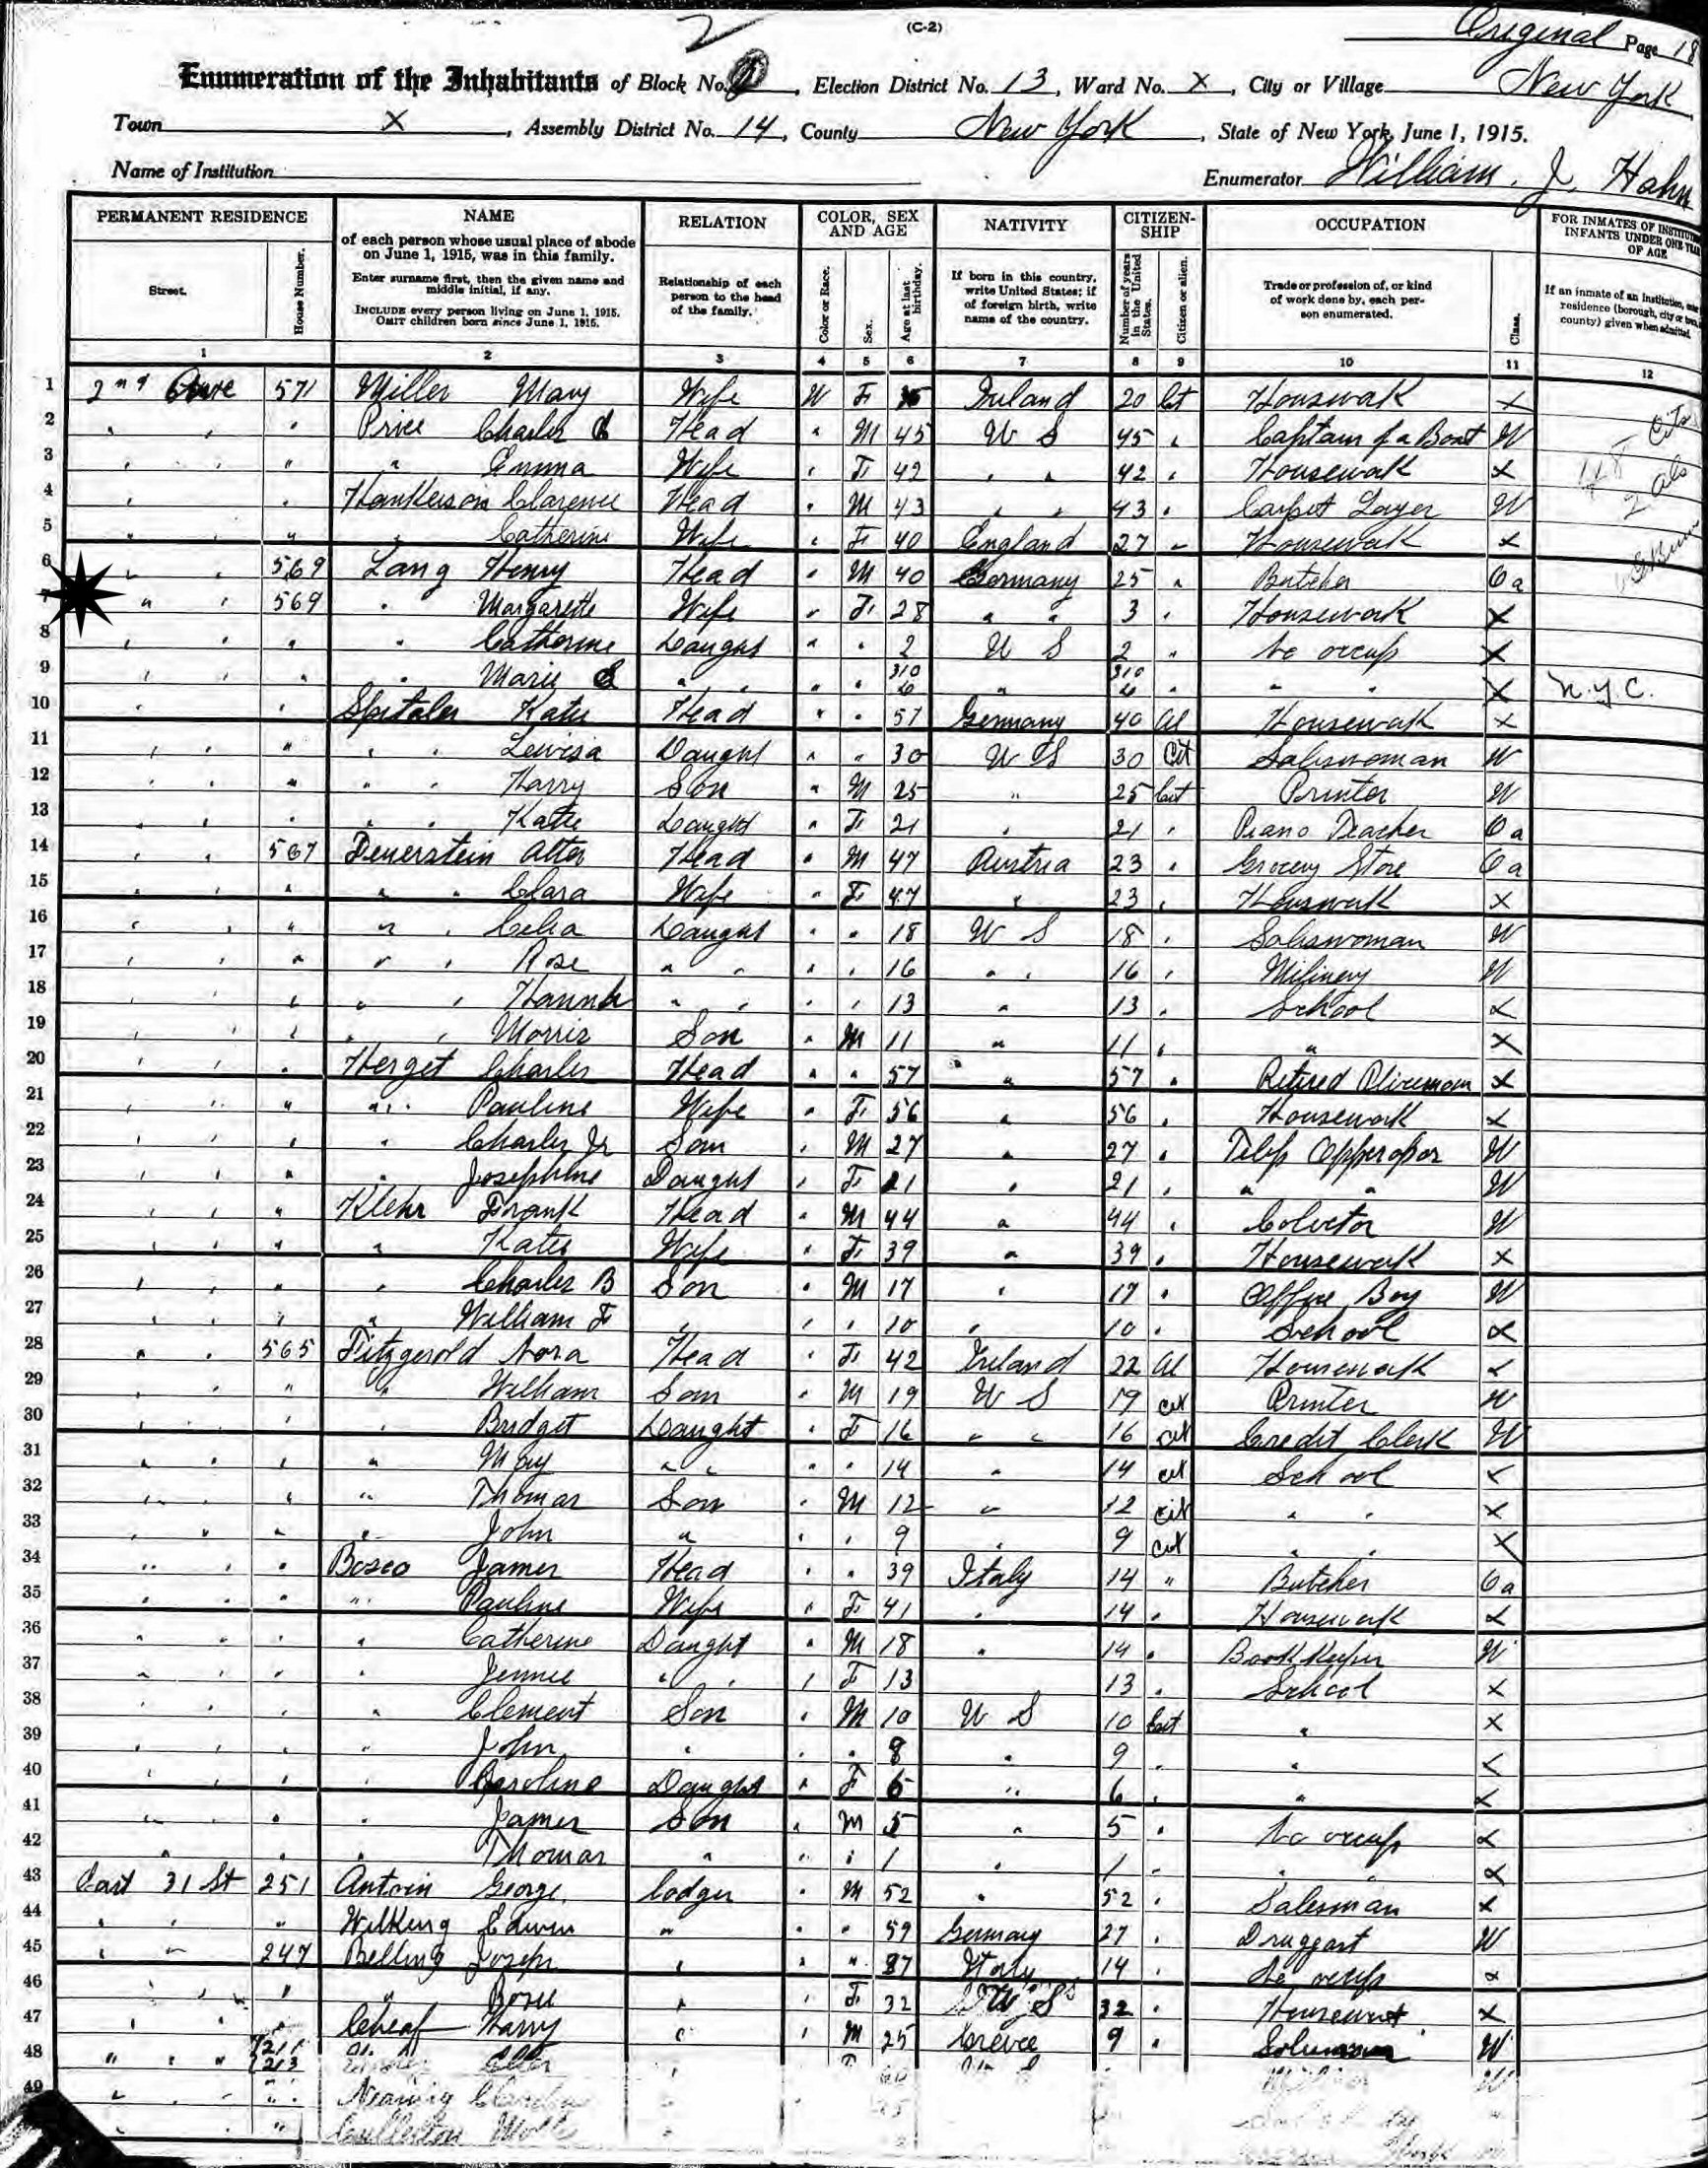 (C-2)
Original Page 18
Enumeration of the Inhabitants of Block No. , Election District No. 13, Ward No. X, City or Village New York
Town X, Assembly District No. 14, County New York, State of New York, June 1, 1915.
Name of Institution
Enumerator William J. Hahn
PERMANENT RESIDENCE NAME RELATION COLOR, SEX AND AGE NATIVITY CITIZEN-SHIP OCCUPATION FOR INMATES OF INSTITUTIONS INFANTS UNDER ONE YEAR OF AGE
Street. House Number. of each person whose usual place of abode on June 1, 1915, was in this family. Enter surname first, then the given name and middle initial, if any. INCLUDE every person living on June 1, 1915. OMIT children born since June 1, 1915. Relationship of each person to the head of the family. Color or Race. Sex. Age at last birthday. If born in this country, write United States; if of foreign birth, write name of the country. Number of years in the United States. Citizen or alien. Trade or profession of, or kind of work done by, each person enumerated. Class. If an inmate of an institution, residence (borough, city or town, county) given when admitted.
1 2 3 4 5 6 7 8 9 10 11 12
1 2nd Ave 571 Miller Mary Wife W F Ireland 20 Cit Housework X
2 " " " Price Charles Head " M 45 U S 45 " Captain of a Boat W
3 " " " " Emma Wife " F 42 " " 42 " Housework X
4 " " " Hankerson Clarence Head " M 43 " " 43 " Carpet Layer W
5 " " " " Catherine Wife " F 40 England 27 " Housework X
6 " " 569 Lang Henry Head " M 40 Germany 25 " Butcher Oa
7 " " 569 " Margarette Wife " F 28 " " 3 " Housework X
8 " " " " Catherine Daught " " 2 U S 2 " No occup X
9 " " " " Marie " " " " 3/10 " 3/10 " " " X N.Y.C.
10 " " " Spitaler Kate Head " " 57 Germany 40 Al Housework X
11 " " " " " Lewisa Daught " " 30 U S 30 Cit Saleswoman W
12 " " " " " Harry Son " M 25 " 25 Cit Printer W
13 " " " " " Katie Daught " F 21 " 21 " Piano Teacher Oa
14 " " 567 Feuerstein Alter Head " M 47 Austria 23 " Grocery Store Oa
15 " " " " " Clara Wife " F 47 " 23 " Housework X
16 " " " " " Celia Daught " " 18 U S 18 " Saleswoman W
17 " " " " " Rose " " " " 16 " " 16 " Milinery W
18 " " " " " Hannah " " " " 13 " 13 " School X
19 " " " " " Morris Son " M 11 " 11 " " X
20 " " " Herget Charles Head " " 57 " 57 " Retired Policeman X
21 " " " " Pauline Wife " F 56 " 56 " Housework X
22 " " " " Charles Jr Son " M 27 " 27 " W
23 " " " " Josephine Daught " F 21 " 21 " " " W
24 " " " Klehr Frank Head " M 44 " 44 " Colector W
25 " " " " Kate Wife " F 39 " 39 " Housework X
26 " " " " Charles B Son " M 17 " 17 " Office Boy W
27 " " " " William F " " " 10 " 10 " School X
28 " " 565 Fitzgerold Nora Head " F 42 Ireland 22 Al Housework X
29 " " " " William Son " M 19 U S 19 cit Printer W
30 " " " " Bridget Daught " F 16 " " 16 cit Credit Clerk W
31 " " " " Mary " " " " 14 " 14 cit School X
32 " " " " Thomas Son " M 12 " 12 cit " " X
33 " " " " John " " " 9 " 9 cit " " X
34 " " " Bosco James Head " " 39 Italy 14 " Butcher Oa
35 " " " " Pauline Wife " F 41 " 14 " Housework X
36 " " " " Catherine Daught " M 18 " 14 " Book Keeper W
37 " " " " Jennie " " " F 13 13 " School X
38 " " " " Clement Son " M 10 U S 10 Cit " X
39 " " " " John " " " " 9 " " X
40 " " " " Caroline Daught " F 6 " 6 " " X
41 " " " " James Son " M 5 " 5 " No occup X
42 " " " " Thomas " " " 1 " 1 " " X
43 East 31 St 251 Antoin George Lodger " M 52 " 52 " Salesman X
44 " " " Wilking Edwin " " " 59 Germany 27 " Druggest W
45 " " 247 Belling Joseph " " " 37 Italy 14 " No occup X
46 " " " " Rosie " " F 32 U S 32 " Housework X
47 " " " Cheaf Harry " " M 25 Greece 9 " W
48 " " " 213
49 " " " Nearing
" " Cullerton